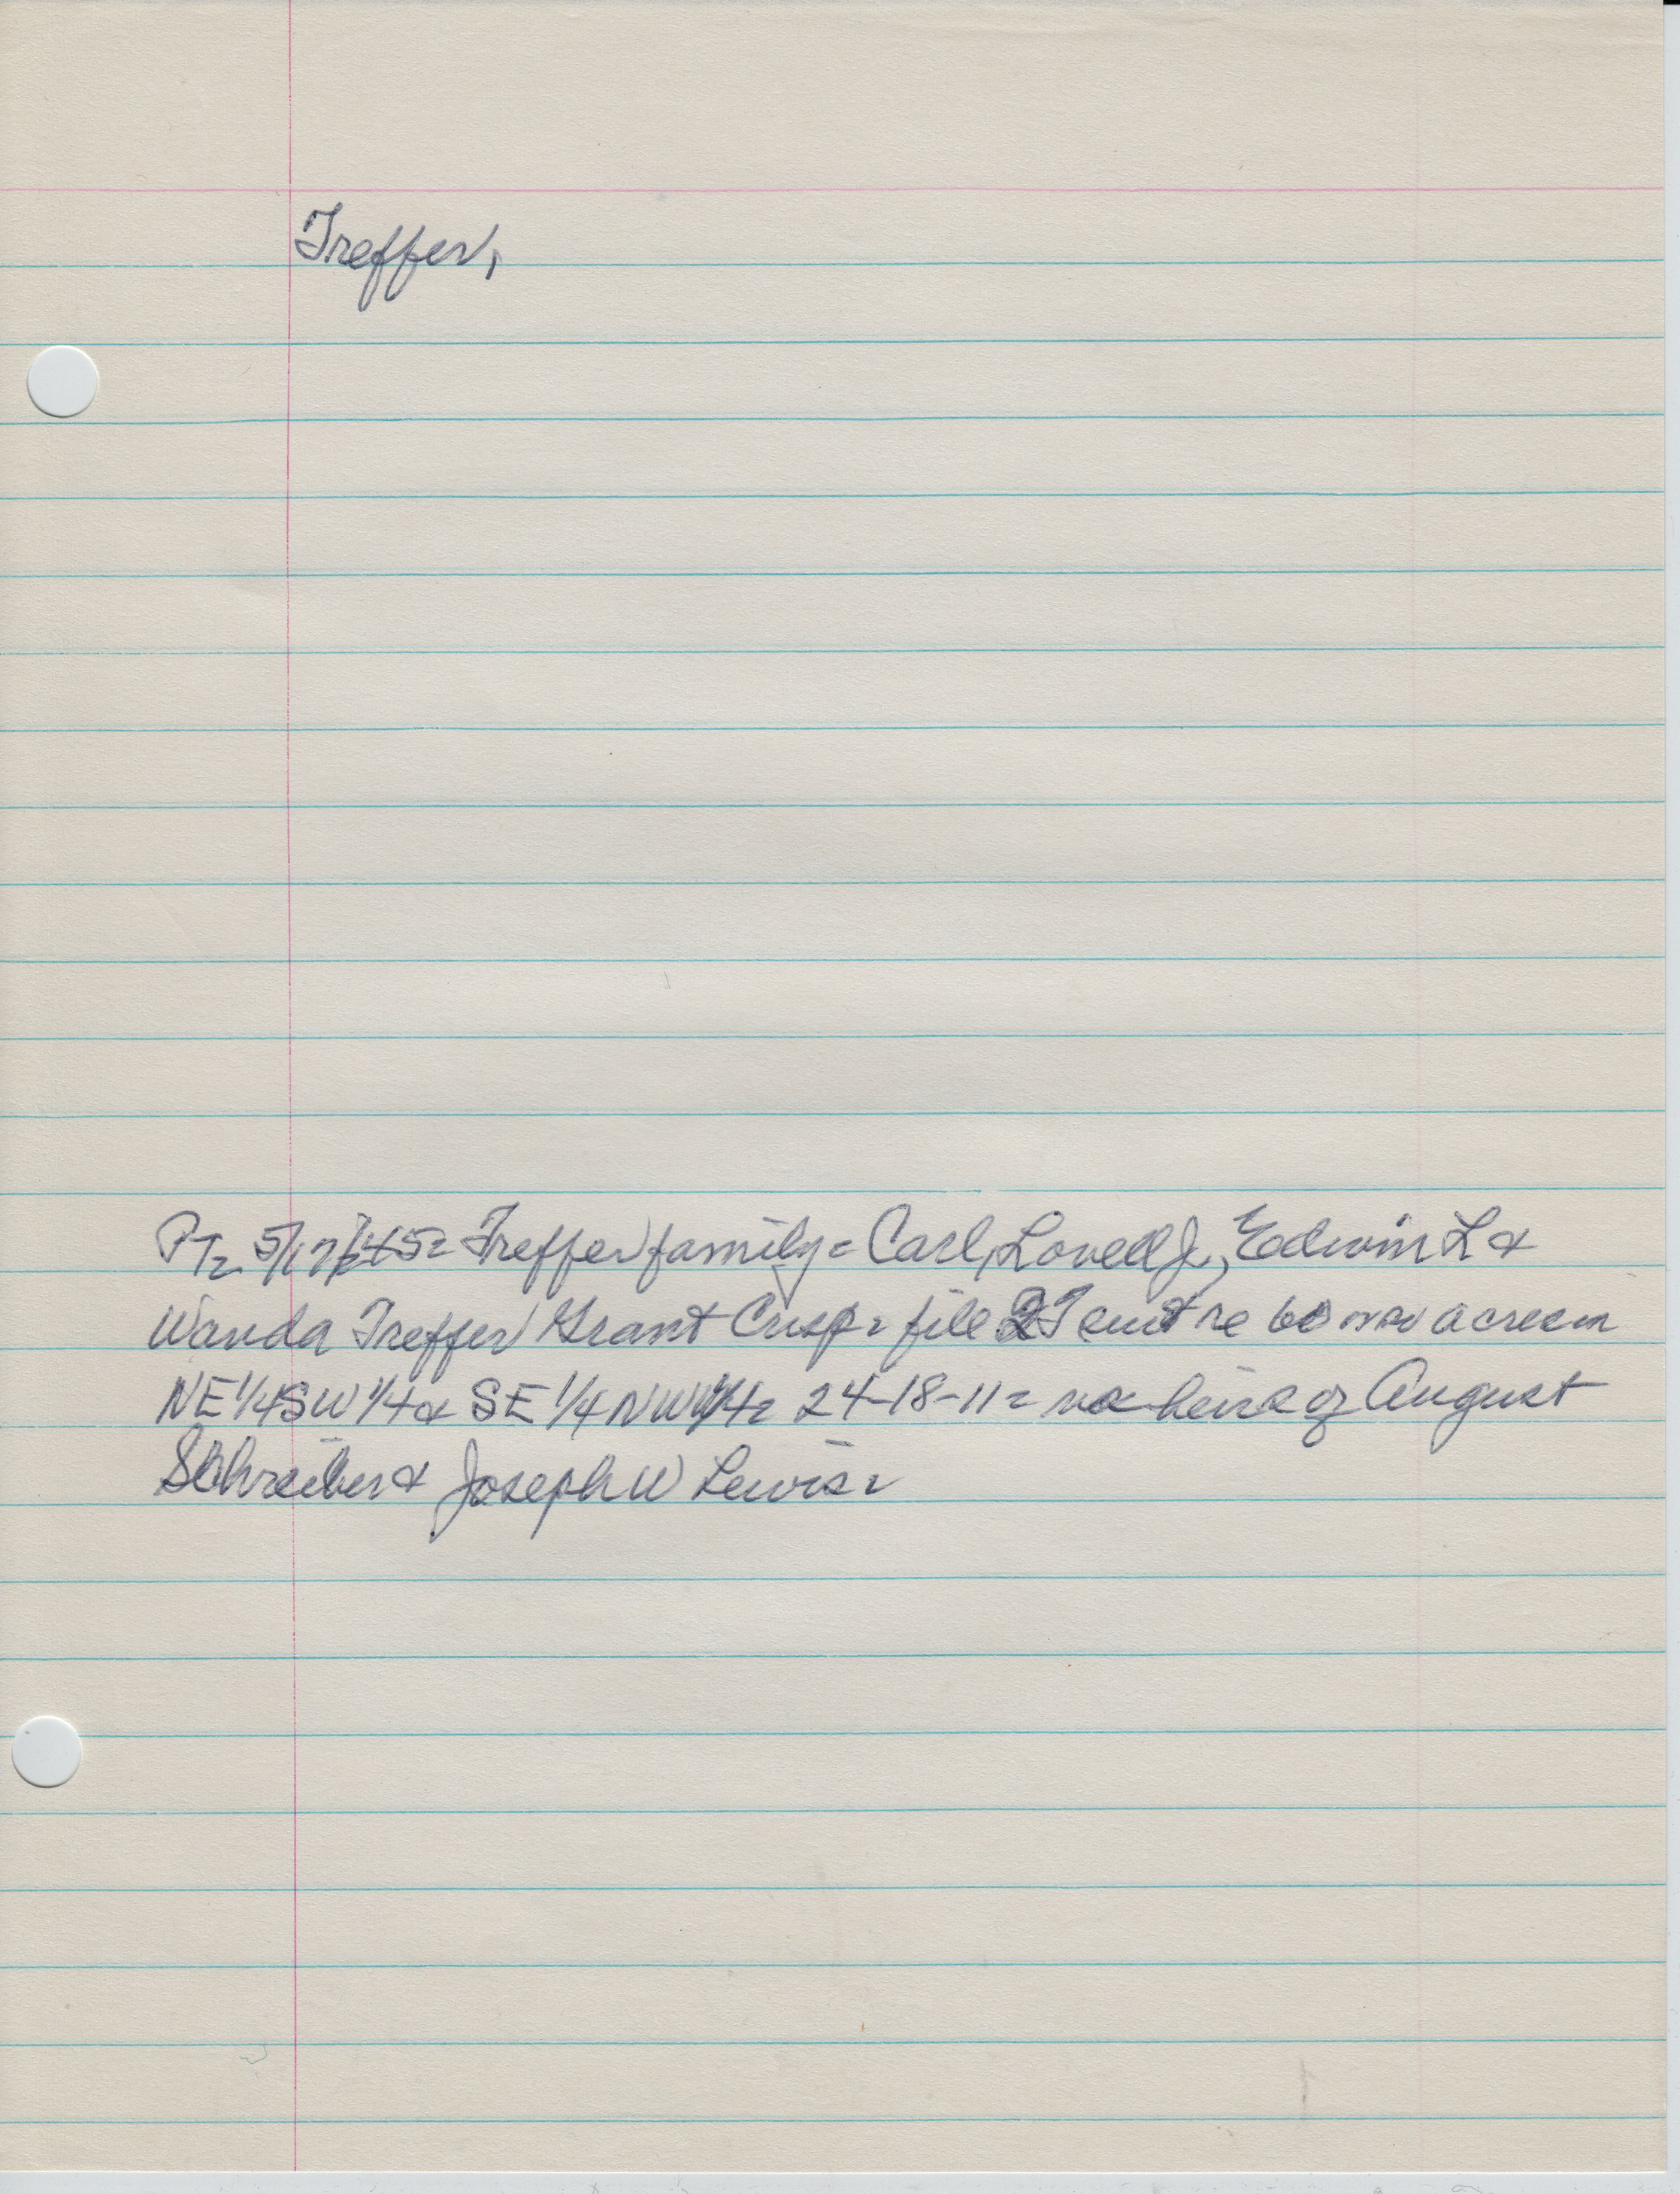 Treffer,
PT= 5/17/45= Treffer family= Carl, Lovell J, Edwin L &
Wanda Treffer / Grant Crisp= file QT suit re 60 acres in
NE 1/4 SW 1/4 & SE 1/4 NW 1/4= 24-18-11= vs heirs of August
Schreiber & Joseph W Lewis=